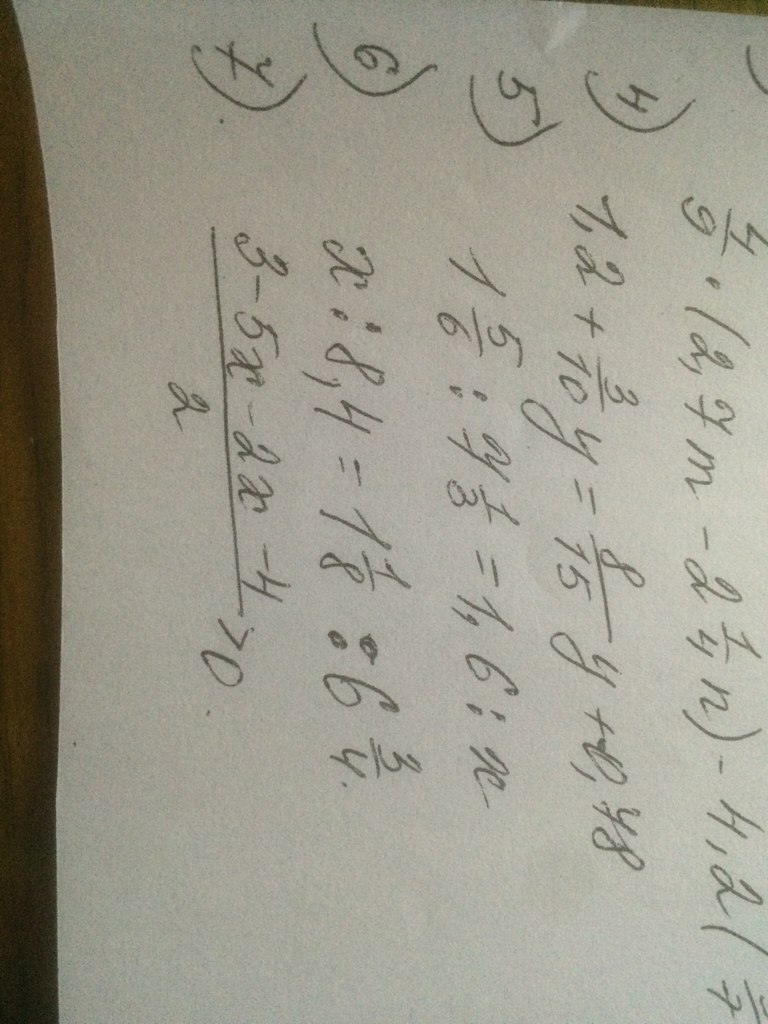 ) 4/9 · (2,7m - 2 1/4 n) - 4,2(
4) 1,2 + 3/10 y = 8/15 y + 0,78
5) 1 5/6 : 7 1/3 = 1,6 : x
6) x : 8,4 = 1 1/8 : 6 3/4.
7) (3-5x-2x-4)/2 >0.